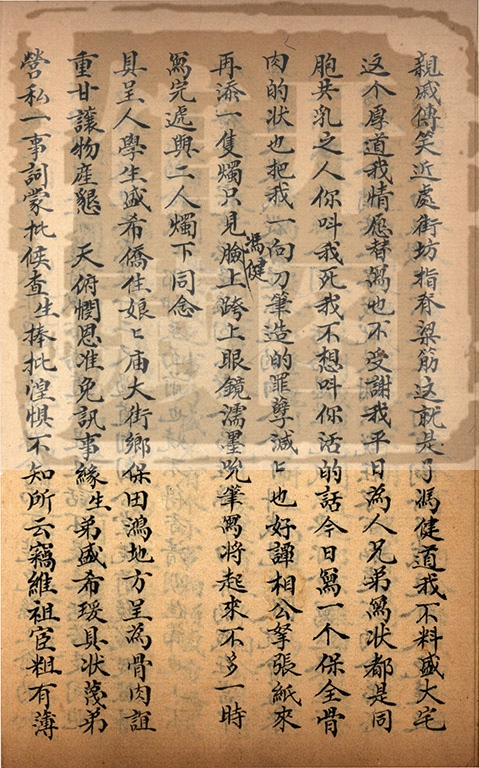 親戚傳笑近處街坊指脊梁筋這就是了馮健道我不料盛大宅
这个厚道我情愿替寫也不受謝我平日為人兄弟寫状都是同
胞共乳之人你叫我死我不想叫你活的話今日寫一个保全骨
肉的状也把我一向刀筆造的罪孽减〻也好譚相公拏張紙來
再添一隻燭只見馮健臉上跨上眼鏡濡墨吮筆寫将起來不多一時
寫完遞與二人燭下同念
具呈人學生盛希僑住娘〻庙大街鄉保田鴻地方呈為骨肉誼
重甘讓物産懇　天俯憫恩准免訊事緣生弟盛希瑗具状𦻏弟
營私一事訶蒙批候查生捧批惶惧不知所云竊維祖宦粗有薄